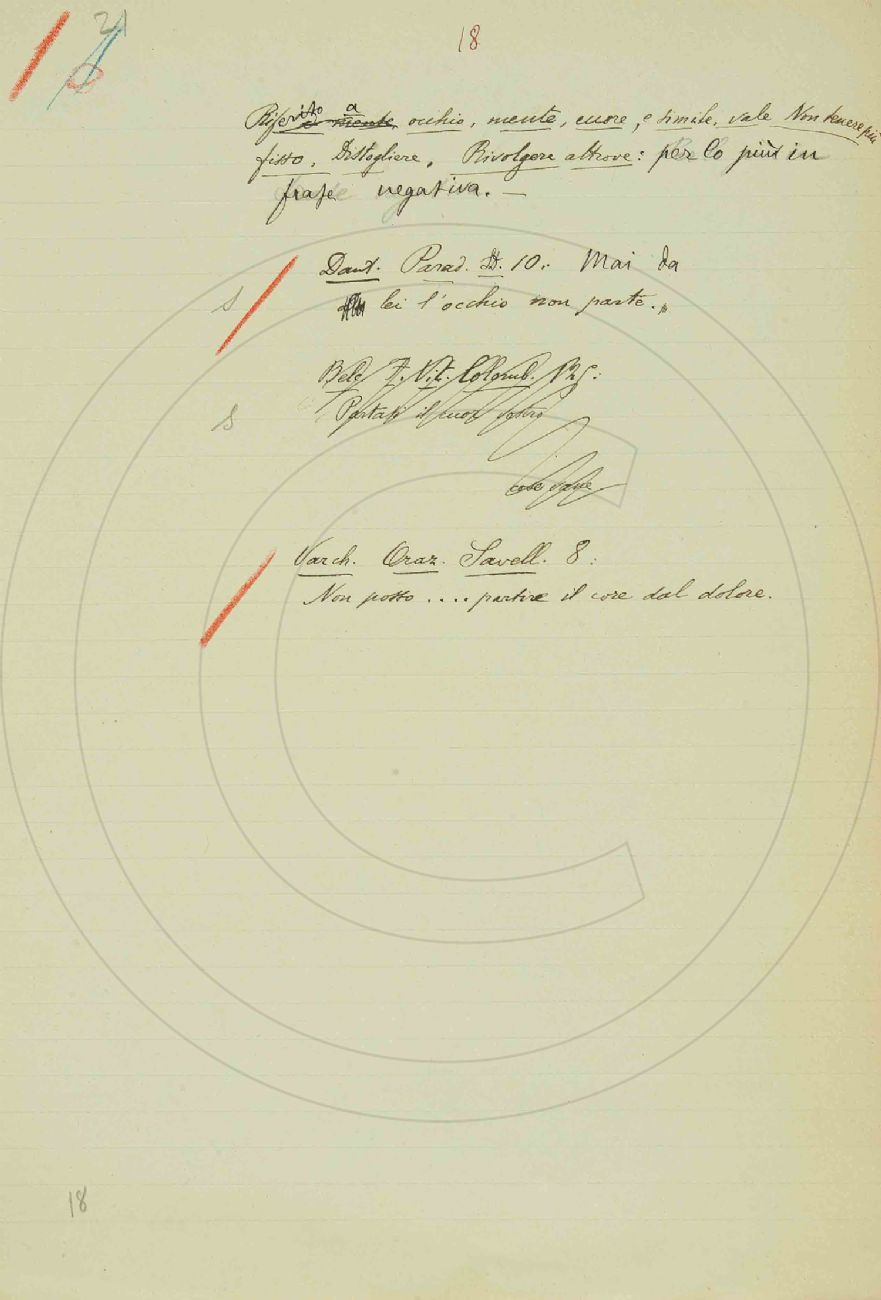 21
18
Riferito a occhio, mente, cuore, e simile, vale Non tenere più
fisso, Distogliere, Rivolgere altrove: per lo più in
frase negativa. —
Dant. Parad. 10: Mai da
S lei l'occhio non parte.„
Belc. F. Vit. Colomb. 125:
S Partasi il cuor vostro
cose vane.
Varch. Oraz. Savell. 8:
Non posso .... partire il core dal dolore.
18